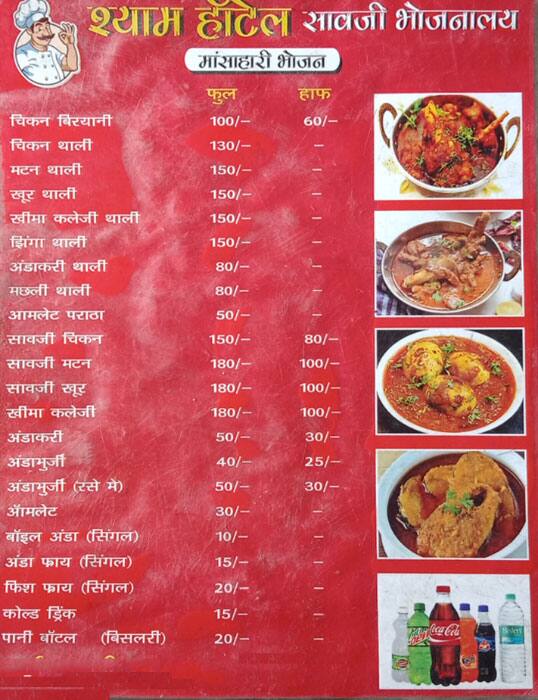 श्याम हॉटेल सावजी भोजनालय
मांसाहारी भोजन
फुल हाफ
चिकन बिरयानी 100/– 60/–
चिकन थाली 130/– –
मटन थाली 150/– –
खूर थाली 150/– –
खीमा कलेजी थाली 150/– –
झिंगा थाली 150/– –
अंडाकरी थाली 80/– –
मछली थाली 80/– –
आमलेट पराठा 50/– –
सावजी चिकन 150/– 80/–
सावजी मटन 180/– 100/–
सावजी खूर 180/– 100/–
खीमा कलेजी 180/– 100/–
अंडाकरी 50/– 30/–
अंडाभुर्जी 40/– 25/–
अंडाभुर्जी (रसे में) 50/– 30/–
ऑमलेट 30/– –
बॉइल अंडा (सिंगल) 10/– –
अंडा फ्राय (सिंगल) 15/– –
फिश फ्राय (सिंगल) 20/– –
कोल्ड ड्रिंक 15/– –
पानी बॉटल (बिसलरी) 20/– –
Coca-Cola